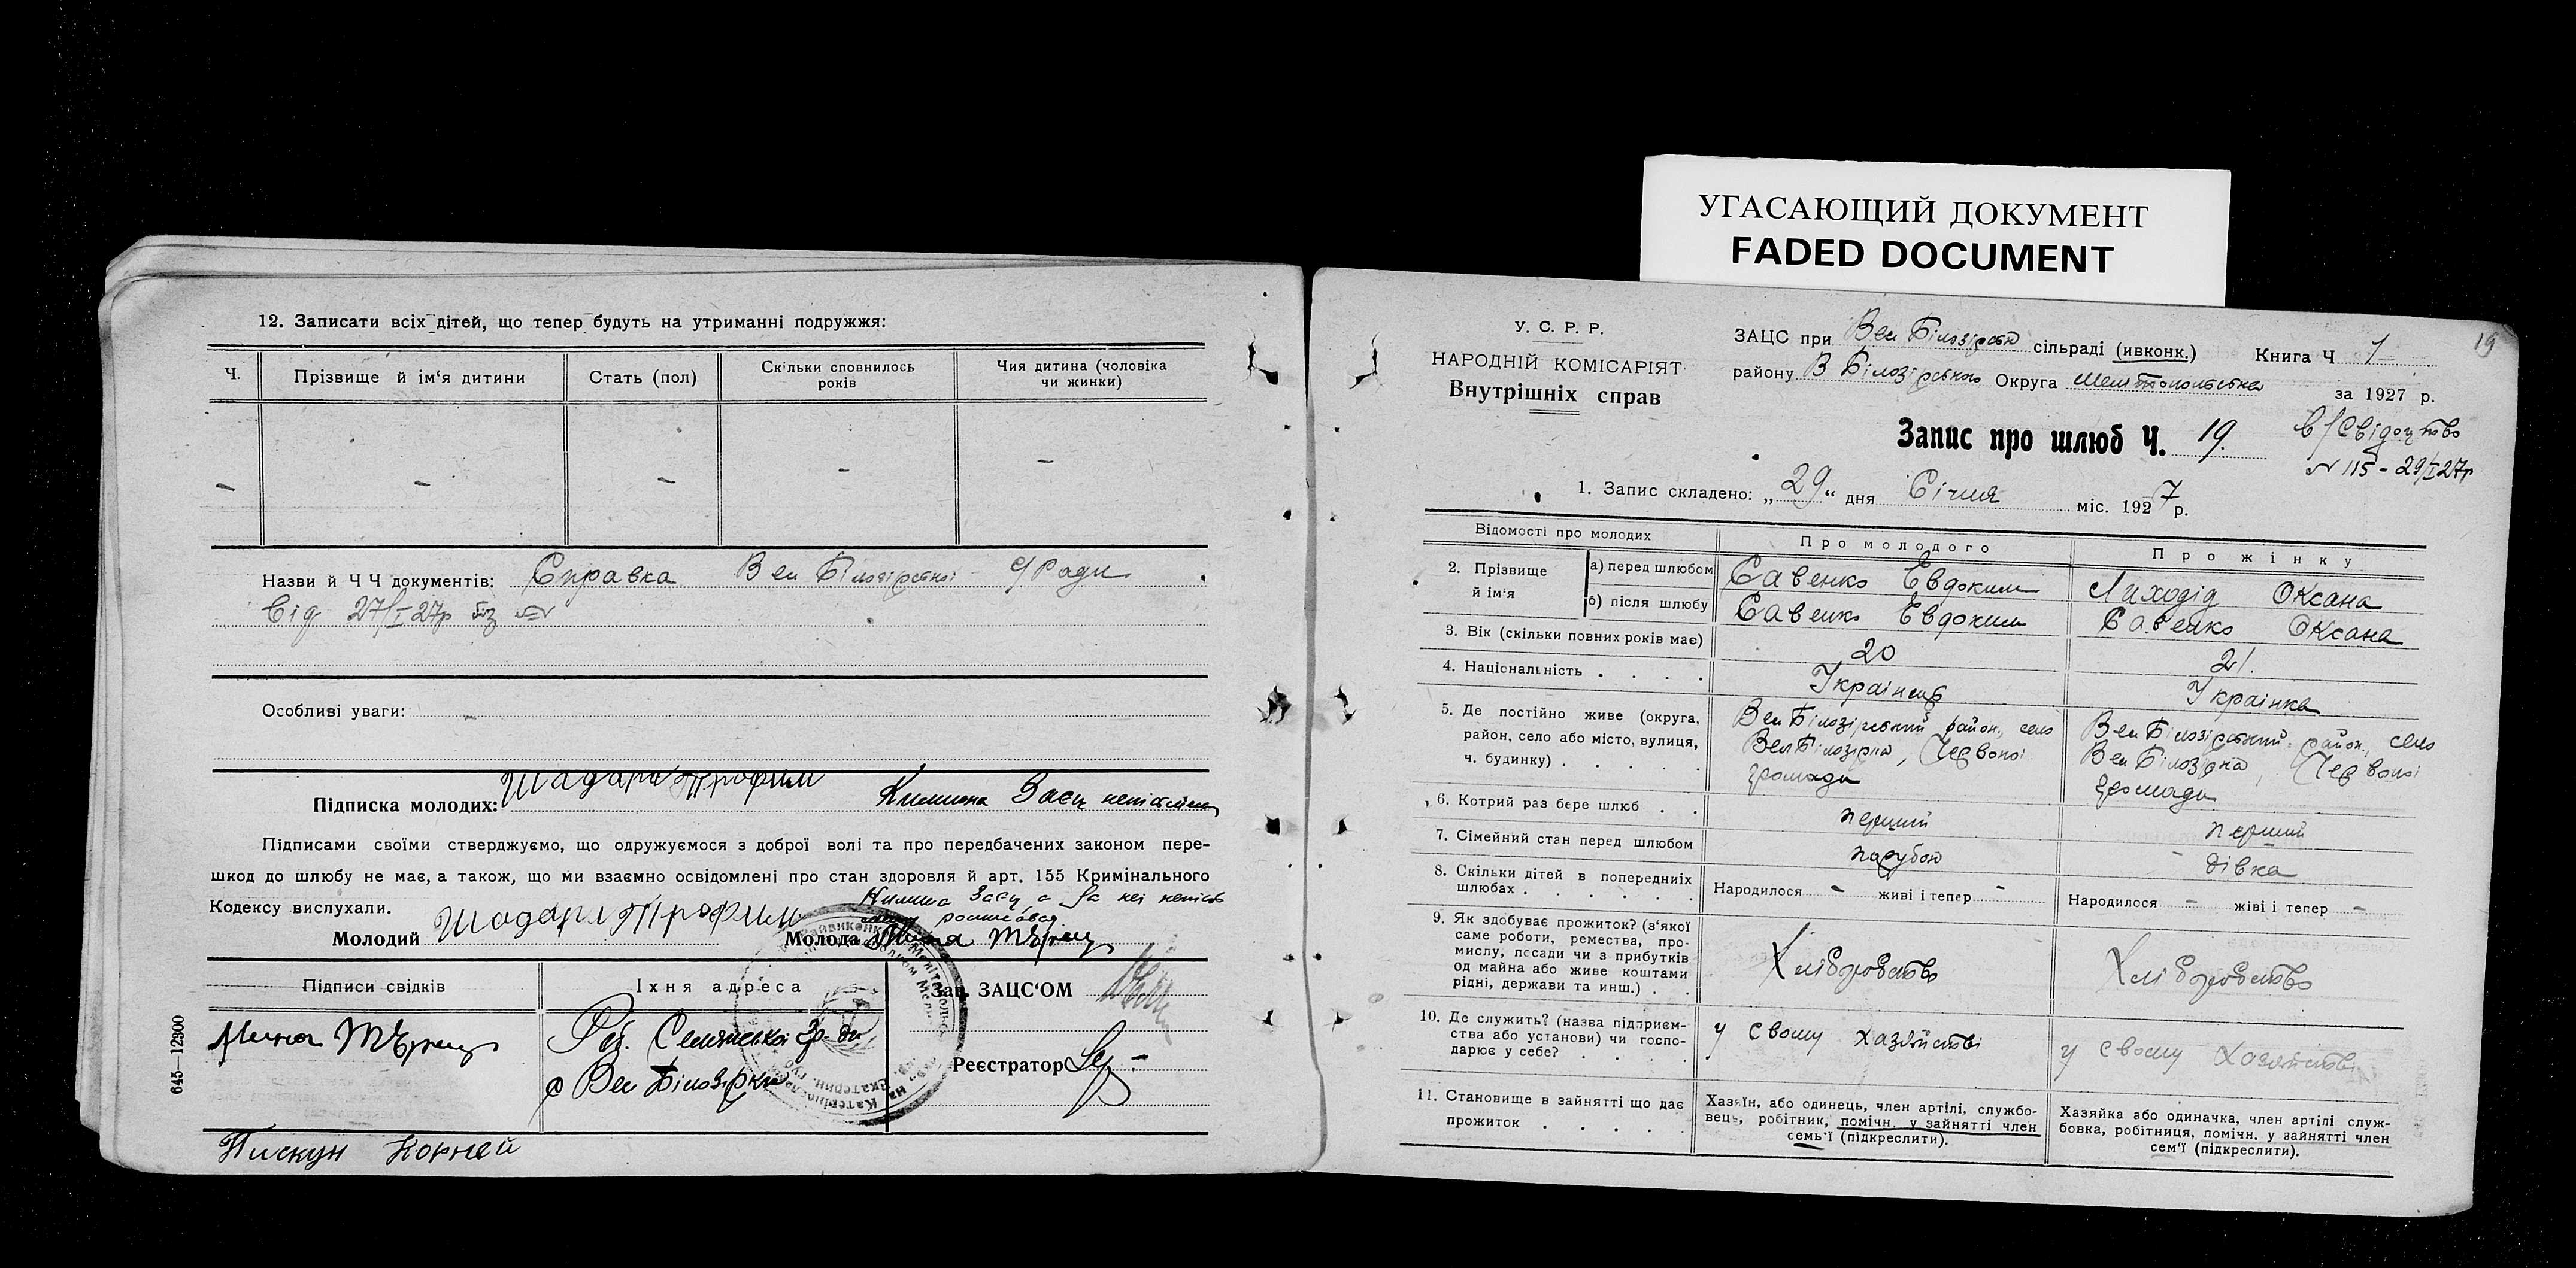 УГАСАЮЩИЙ ДОКУМЕНТ
FADED DOCUMENT
12. Записати всіх дітей, що тепер будуть на утриманні подружжя:
Ч. Прізвище й ім'я дитини Стать (пол) Скільки сповнилось років Чия дитина (чоловіка чи жинки)
- - - - -
Назви й Ч Ч документів: Справка Вел Білозірської с/Ради
від 27/I-27р без №
Особливі уваги: -
Підписка молодих: Шадара Трофим Килина Заєц
Підписами своїми стверджуємо, що одружуємося з доброї волі та про передбачених законом пере-
шкод до шлюбу не має, а також, що ми взаємно освідомлені про стан здоровля й арт. 155 Кримінального
Кодексу вислухали. Килина Заєц, а за неї
Молодий Шадара Трофим Молода
Підписи свідків Їхня адреса Зав. ЗАЦС'ОМ
Реєстратор
с Вел Білозірка
Пискун Корней
645—12300
19
У. С. Р. Р.
НАРОДНІЙ КОМІСАРІЯТ
Внутрішніх справ
ЗАЦС при Вел Білозірській сільраді (ивконк.) Книга Ч 1
району В Білозірського Округа Мелітопольська
за 1927 р.
Запис про шлюб Ч. 19.
в/свідоцтво
№ 115 - 29/I 27р
1. Запис складено: „29“ дня Січня міс. 1927 р.
Відомості про молодих Про молодого Про жінку
2. Прізвище й ім'я а) перед шлюбом Савенко Евдоким Лиходід Оксана
б) після шлюбу Савенко Евдоким Савенко Оксана
3. Вік (скільки повних років має) 20 21.
4. Національність . . . . Українець Українка
5. Де постійно живе (округа, район, село або місто, вулиця, ч. будинку) . . . . .
Вел Білозірський район, село
Вел Білозірка, Червоної
громади
Вел Білозірський район, село
Вел Білозірка, Червоної
громади
6. Котрий раз бере шлюб . . перший перший
7. Сімейний стан перед шлюбом парубок дівка
8. Скільки дітей в попередніх шлюбах . . . . . . Народилося - живі і тепер - Народилося - жіві і тепер -
9. Як здобуває прожиток? (з'якої
саме роботи, ремества, про-
мислу, посади чи з прибутків
од майна або живе коштами
рідні, держави та инш.) . .
Хліборобство Хліборобство
10. Де служить? (назва підприєм-
ства або установи) чи госпо-
дарює у себе? . . . .
у свому хазяйстві у свому хазяйстві
11. Становище в зайнятті що дає
прожиток . . . . .
Хазяїн, або одинець, член артілі, службо-
вець, робітник, помічн. у зайнятті член
семь'ї (підкреслити).
Хазяйка або одиначка, член артілі служ-
бовка, робітниця, помічн. у зайнятті член
сем'ї (підкреслити).